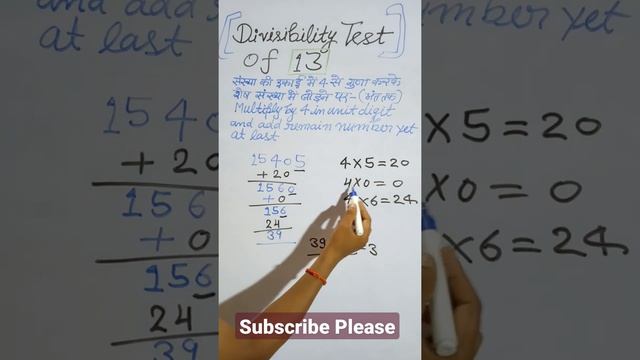 [Divisibility Test]
of 13
संख्या की इकाई में 4 से गुणा करके
शेष संख्या में जोड़ने पर - (अंत तक)
Multiply by 4 in unit digit
and add remain number yet
at last
15405
+ 20
1560
+ 0
156
24
39
4×5=20
4×0=0
4×6=24
39
3
Subscribe Please